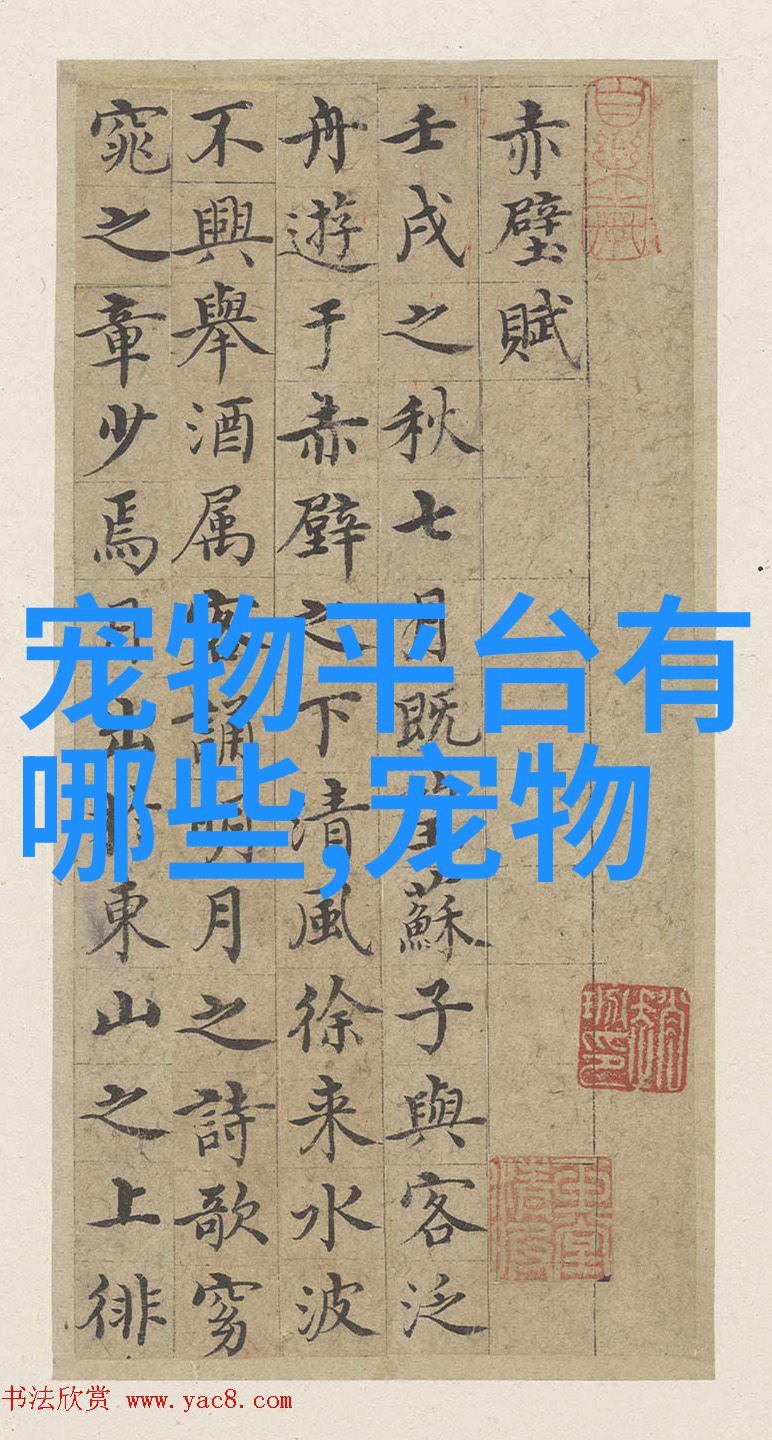 赤壁賦
壬戌之秋七月既望蘇子與客泛
舟遊于赤壁之下清風徐来水波
不興舉酒属客誦明月之詩歌窈
窕之章少焉月出於東山之上徘
宠物平台有
哪些,宠物
书法欣赏 www.yac8.com